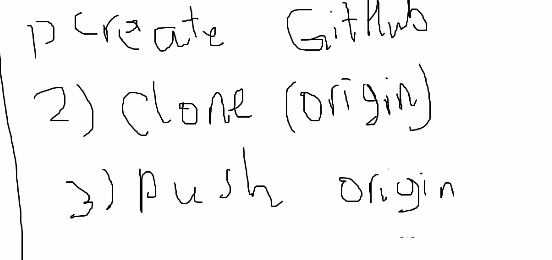 1) Create GitHub
2) Clone (origin)
3) push origin